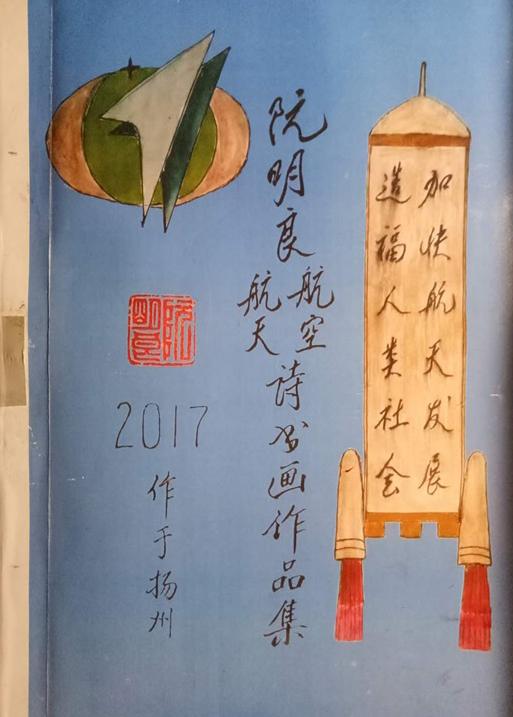 加快航天发展
造福人类社会
阮明良
航空
航天
诗书画作品集
2017
作于扬州